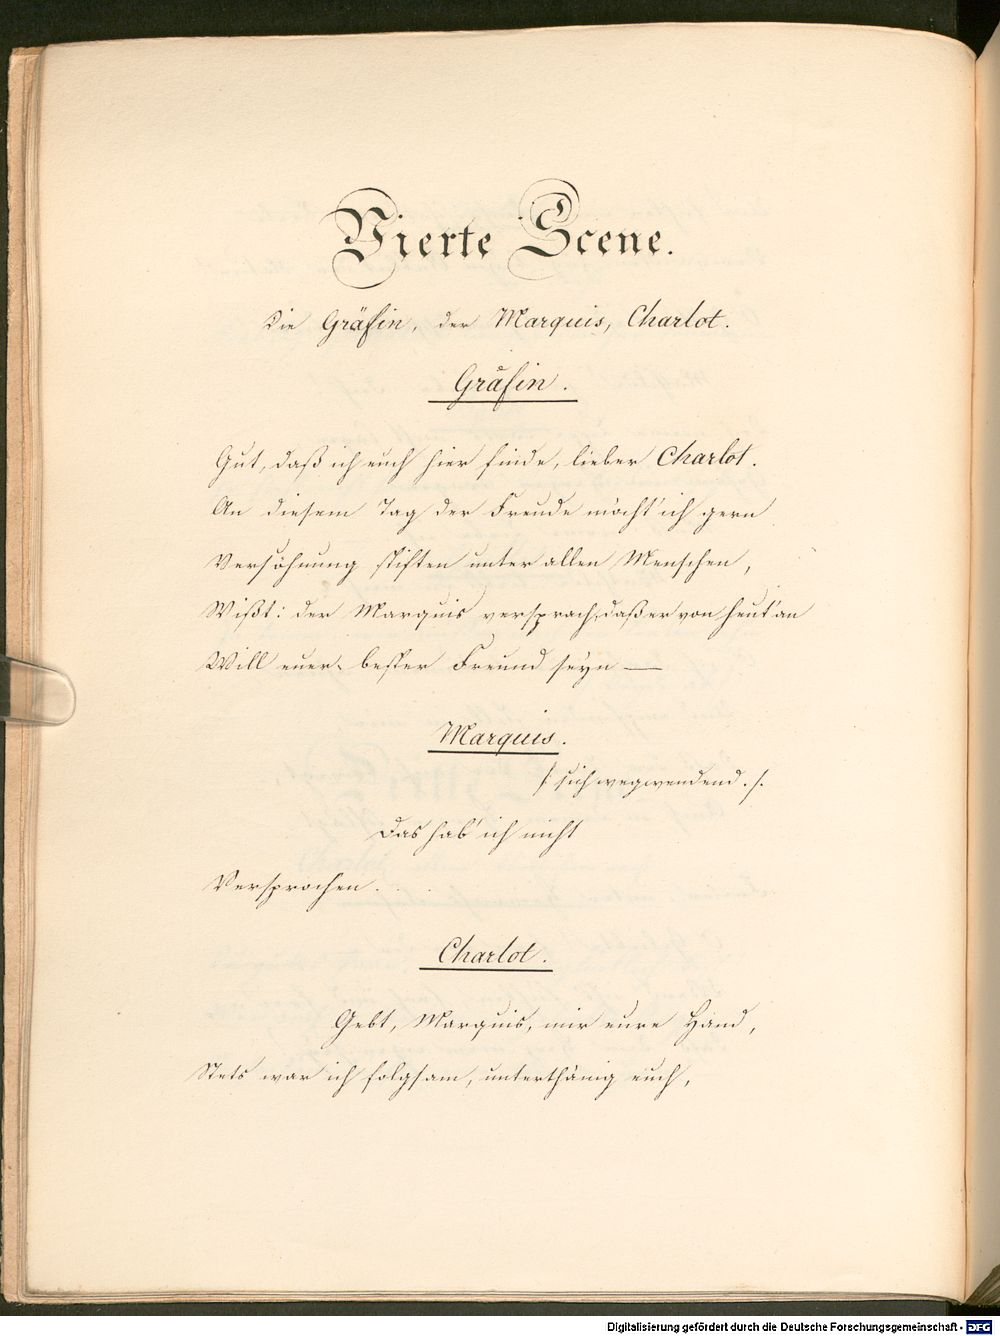 Vierte Scene.
Die Gräfin, der Marquis, Charlot.
Gräfin.
Gut, daß ich euch hier finde, lieber Charlot.
An diesem Tag der Freude möcht' ich gern
Versöhnung stiften unter allen Menschen,
Wißt: der Marquis versprach, daß er von heut' an
Will euer bester Freund seyn —
Marquis.
/: sich wegwendend. :/
Das hab' ich nicht
Versprochen.
Charlot.
Gebt, Marquis, mir eure Hand,
Stets war ich folgsam, unterthänig euch,
Digitalisierung gefördert durch die Deutsche Forschungsgemeinschaft - DFG